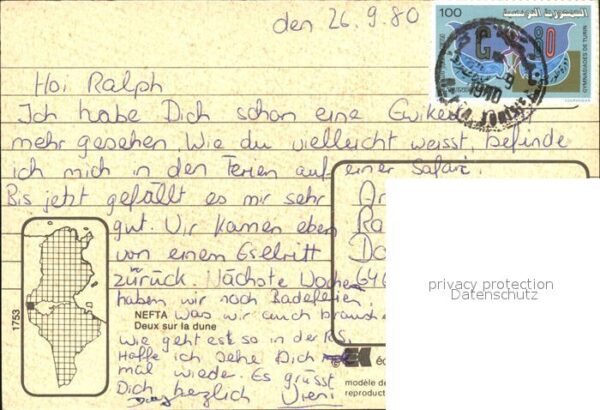 den 26.9.80
100
الجمهورية التونسية
GYMNASIADES DE TURIN
80
Hoi Ralph
Ich habe Dich schon eine Ewikeit
mehr gesehen. Wie du vielleicht weisst, befinde
ich mich in den Ferien auf einer Safari.
Bis jetzt gefällt es mir sehr
gut. Wir kamen eben
von einem Eselritt
zürück. Nächste Woche
haben wir noch Badeferien.
Was wir auch brauchen
wie geht es so in der RS,
Hoffe ich sehe Dich
mal wieder. Es grüsst
Dich herzlich Vreni
Ra
Do
646
1753
NEFTA
Deux sur la dune
éd
modèle dé
reproduct
privacy protection
Datenschutz